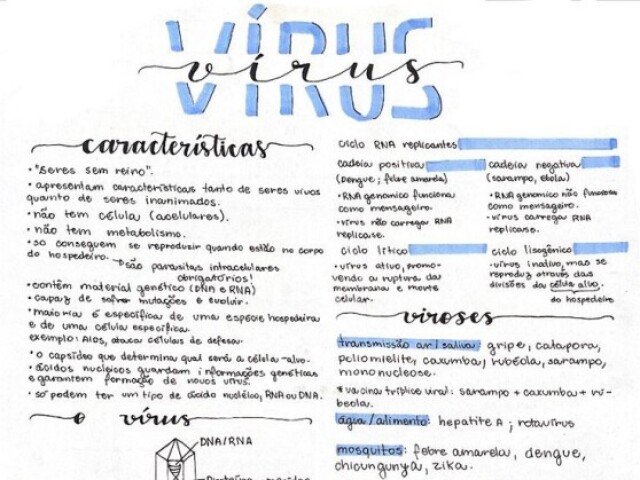 VÍRUS
vírus
características
• "seres sem reino".
• apresentam características tanto de seres vivos
quanto de seres inanimados.
• não tem célula (acelulares).
• não tem metabolismo.
• só conseguem se reproduzir quando estão no corpo
do hospedeiro.
são parasitas intracelulares
obrigatórios!
• contém material genético (DNA e RNA)
• capaz de sofrer mutações e evoluir.
• maioria é específica de uma espécie hospedeira
e de uma célula específica.
exemplo: AIDS, ataca células de defesa.
• o capsídeo que determina qual será a célula-alvo.
• ácidos nucleicos guardam informações genéticas
e garantem formação de novos vírus.
• só podem ter um tipo de ácido nucléico, RNA ou DNA.
o vírus
DNA/RNA
ciclo RNA replicantes
cadeia positiva
(Dengue; febre amarela)
• RNA genomico funciona
como mensageiro.
• vírus não carrega RNA
replicase.
cadeia negativa
(sarampo, ebola)
• RNA genomico não funciona
como mensageiro.
• vírus carrega RNA
replicase.
ciclo lítico
• vírus ativo, promo-
vendo a ruptura da
membrana e morte
celular.
ciclo lisogênico
• vírus inativo, mas se
reproduz através das
divisões da célula alvo.
do hospedeiro
viroses
transmissão ar/saliva: gripe, catapora,
poliomielite, caxumba, rubéola, sarampo,
mononucleose.
* vacina tríplice viral: sarampo + caxumba + ru-
béola.
água/alimento: hepatite A; rotavírus
mosquitos: febre amarela, dengue,
chicungunya, zika.